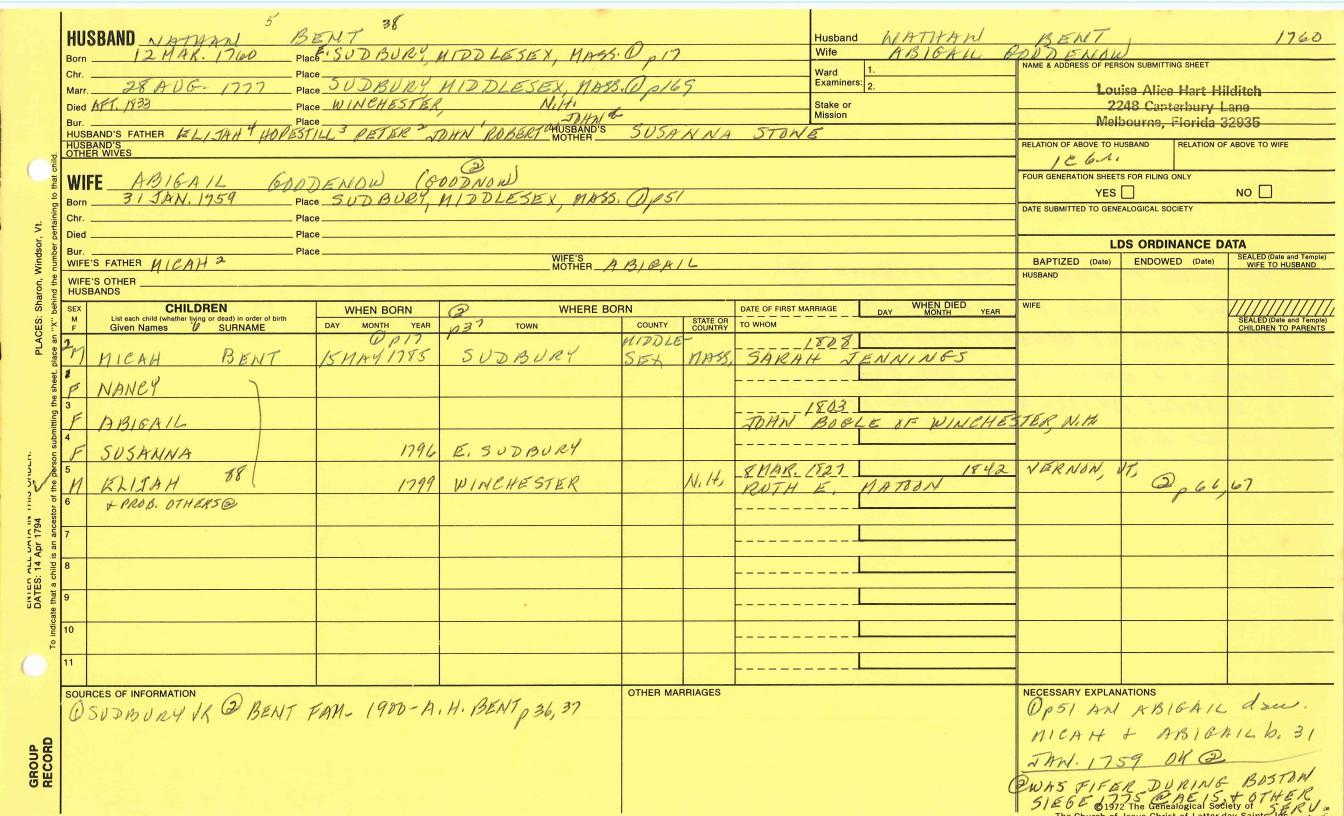 5 38
HUSBAND NATHAN BENT
Born 12 MAR. 1760 Place E. SUDBURY, MIDDLESEX, MASS. ① p17
Chr. Place
Marr. 28 AUG. 1777 Place SUDBURY MIDDLESEX, MASS. ① p169
Died AFT. 1833 Place WINCHESTER, N.H.
Bur. Place
HUSBAND'S FATHER ELIJAH 4 HOPESTILL 3 PETER 2 JOHN 1 ROBERT JOHN HUSBAND'S MOTHER SUSANNA STONE
HUSBAND'S OTHER WIVES
Husband NATHAN BENT 1760
Wife ABIGAIL GOODENOW
Ward Examiners: 1.
2.
Stake or Mission
NAME & ADDRESS OF PERSON SUBMITTING SHEET
Louise Alice Hart Hilditch
2248 Canterbury Lane
Melbourne, Florida 32935
RELATION OF ABOVE TO HUSBAND RELATION OF ABOVE TO WIFE
1C 6.r.
FOUR GENERATION SHEETS FOR FILING ONLY
YES NO
DATE SUBMITTED TO GENEALOGICAL SOCIETY
②
WIFE ABIGAIL GOODENOW (GOODNOW)
Born 31 JAN. 1759 Place SUDBURY, MIDDLESEX, MASS. ① p51
Chr. Place
Died Place
Bur. Place
WIFE'S FATHER MICAH 2 WIFE'S MOTHER ABIGAIL
WIFE'S OTHER HUSBANDS
LDS ORDINANCE DATA
BAPTIZED (Date) ENDOWED (Date) SEALED (Date and Temple) WIFE TO HUSBAND
HUSBAND
WIFE
SEALED (Date and Temple) CHILDREN TO PARENTS
SEX M F
CHILDREN
List each child (whether living or dead) in order of birth
Given Names 6 SURNAME
WHEN BORN
DAY MONTH YEAR
② WHERE BORN
p37 TOWN COUNTY STATE OR COUNTRY
DATE OF FIRST MARRIAGE
TO WHOM
WHEN DIED
DAY MONTH YEAR
① p17 MIDDLE- 1808
2 M MICAH BENT 15 MAY 1785 SUDBURY SEX MASS. SARAH JENNINGS
1
F NANCY
3 1803
F ABIGAIL JOHN BOGLE OF WINCHESTER, N.H
4
F SUSANNA 1796 E. SUDBURY
5 8 MAR. 1827 1842 VERNON, VT,
M ELIJAH 88 1799 WINCHESTER N.H. RUTH E. MATOON ② p66,67
6 + PROB. OTHERS ②
7
8
9
10
11
SOURCES OF INFORMATION
① SUDBURY VR ② BENT FAM- 1900-A.H. BENT p36, 37
OTHER MARRIAGES
NECESSARY EXPLANATIONS
① p51 AN ABIGAIL dau.
MICAH & ABIGAIL b. 31
JAN. 1759 OK ②
② WAS FIFER DURING BOSTON
SIEGE 1775 @ AE 15, & OTHER
SERV.
©1972 The Genealogical Society of
The Church of Jesus Christ of Latter-day Saints
PLACES: Sharon, Windsor, Vt.
ENTER ALL DATA IN THIS ORDER:
DATES: 14 Apr 1794
To indicate that a child is an ancestor of the person submitting the sheet, place an "X" behind the number pertaining to that child.
GROUP RECORD